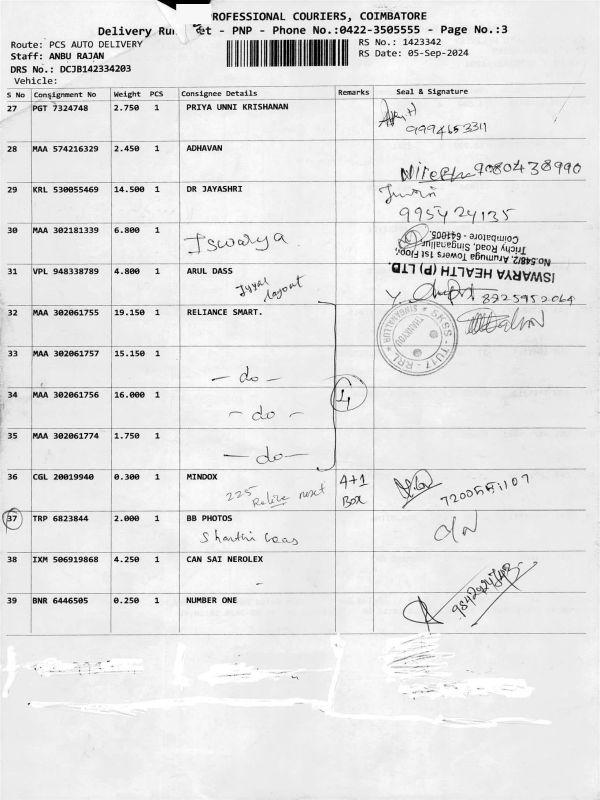 ROFESSIONAL COURIERS, COIMBATORE
Delivery Run et - PNP - Phone No.:0422-3505555 - Page No.:3
Route: PCS AUTO DELIVERY
Staff: ANBU RAJAN
DRS No.: DCJB142334203
Vehicle:
RS No.: 1423342
RS Date: 05-Sep-2024
S No Consignment No Weight PCS Consignee Details Remarks Seal & Signature
27 PGT 7324748 2.750 1 PRIYA UNNI KRISHANAN
9994653311
28 MAA 574216329 2.450 1 ADHAVAN
9080438990
29 KRL 530055469 14.500 1 DR JAYASHRI
9957424135
30 MAA 302181339 6.800 1 Iswarya
ISWARYA HEALTH (P) LTD.
No.548/2, Arumuga Towers 1st Floor,
Trichy Road, Singanallur,
Coimbatore - 641005.
31 VPL 948338789 4.800 1 ARUL DASS
layout
8925952064
32 MAA 302061755 19.150 1 RELIANCE SMART.
33 MAA 302061757 15.150 1
- do -
34 MAA 302061756 16.000 1
- do -
35 MAA 302061774 1.750 1
- do -
4
SINGANALLUR
RRL * TU17 - SSPS
36 CGL 20019940 0.300 1 MINDOX 4+1
225 Box
37 TRP 6823844 2.000 1 BB PHOTOS
Shanthi Geas
38 IXM 506919868 4.250 1 CAN SAI NEROLEX
39 BNR 6446505 0.250 1 NUMBER ONE